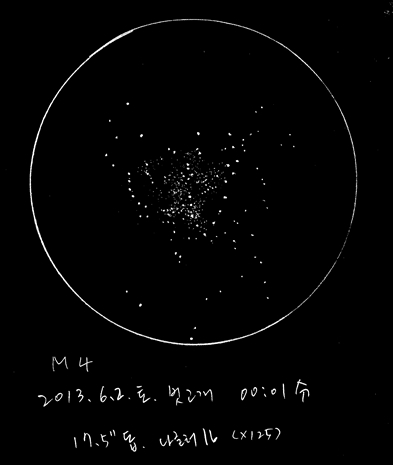 M 4
2013. 6. 2. 토. 벗고개 00:01
17.5" 돕. 나글러 16 (x125)